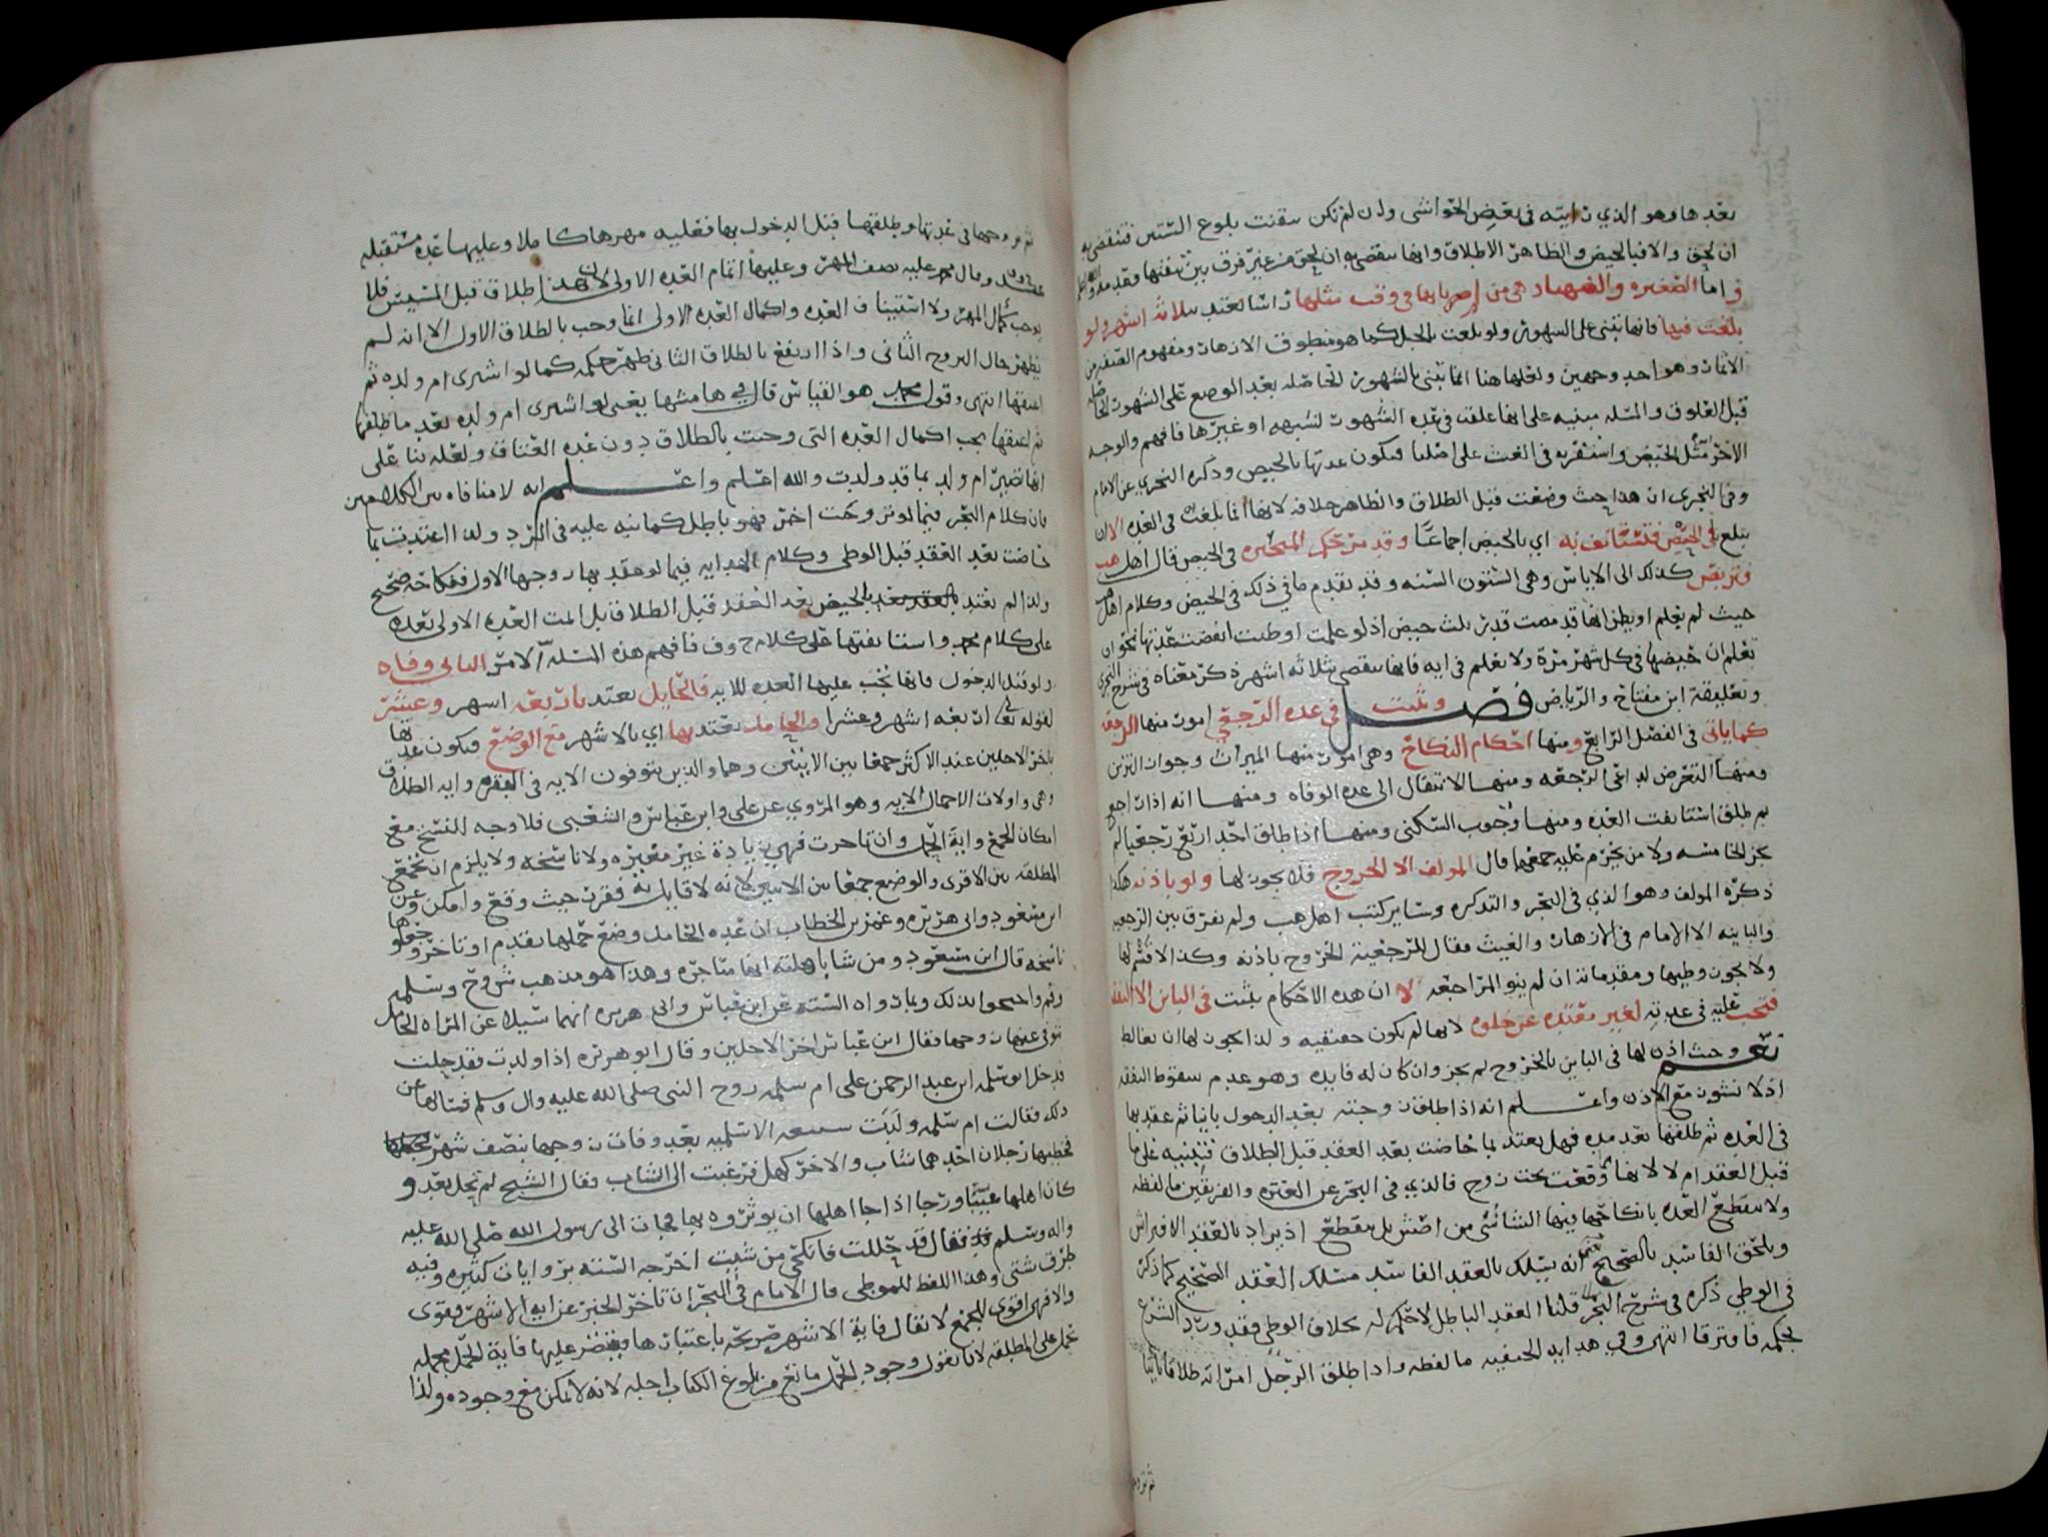 بعدها وهو الذي رايته في بعض الحواشي وان لم تكن سقنت بلوغ الستين فتنقضي به
ان لحق والا فبالحيض والظاهر الاطلاق وانها سقضي به ان لحق من غير فرق بين
واما الصغيره والضهياء هي من لم ياتها في وقت مثلها فانها تعتد بثلاثة اشهر ولو
بلغت فيها فانها تبني على الشهور ولو بلغت بالحبل كما هو منطوق الازهار ومفهوم
الاثمار وهو احد وجهين ولعلها هنا انما تبنى بالشهور الحاصله بعد الوضع على الشهور
قبل العلوق والمسله مبنيه على انها علقت في عده الشهور لشبهه او غيرها فافهم والوجه
الاخر امثل الحيض واستقربه في الغيث على اصلنا فيكون عدتها بالحيض وذكره النجري عن الامام
وفي النجري ان هذا حيث وضعت قبل الطلاق والظاهر خلافه لانها انما بلغت في العده الا ان
تبلغ في الحيض فتستانف به اي بالحيض اجماعا وقد مر حكم المتحيره في الحيض قال اهل
وتربص كذلك الى الاياس وهي الستون السنه وقد تقدم ما في ذلك في الحيض وكلام اهل
حيث لم يعلم او يظن انها قد مضت قدر ثلث حيض اذ لو علمت او ظنت انقضت عدتها نحو ان
تعلم ان حيضها في كل شهر مرة ولا تعلم في ايه فانها سقضي بثلاثه اشهر ذكر معناه في شرح
وتعليقة ابن مفتاح والرياض فصل وتثبت في عده الرجعي امور منها الرجعه
كما ياتي في الفصل الرابع ومنها احكام النكاح وهي امور منها الميراث وجواز التزين
ومنها التعرض لداعي الرجعه ومنها الانتقال الى عده الوفاه ومنها انه اذا راجع
ثم طلق استانفت العده ومنها وجوب السكنى ومنها اذا طلق احد اربع رجعيا لم
يجز الخامسه ولا من يحرم عليه جمعها قال المولف الا الخروج فلا يجوز لها ولو باذنه هكذا
ذكره المولف وهو الذي في البحر والتذكره وسائر كتب اهل هب ولم يفرق بين الرجعيه
والباينه الا الامام في الازهار والغيث فقال للرجعية الخروج باذنه وكذا لا قسم لها
ولا يجوز وطيها ومقدماته ان لم ينو المراجعه لا ان هذه الاحكام يثبت في الباين الا النفقه
فتجب عليه في عدته لغير معتده عن خلوه لانها لم يكون حقيقيه ولذا يجوز لها ان
نعم وحيث اذن لها في الباين بالخروج لم يجز وان كان له فايده وهو عدم سقوط النفقه
اذ لا نشوز مع الاذن واعلم انه اذا طلق زوجته بعد الدخول باينا ثم عقد بها
في العده ثم طلقها بعد مده فهل يعتد بما حاضت بعد العقد قبل الطلاق فتبنيه على ما
قبل العقد ام لا لانها وقعت تحت زوج فالذي في البحر عن العتره والفريقين ما لفظه
ولا ينقطع العده بانكاحها فيها الشافعي من اصش بل ينقطع اذ يراد بالعقد الافتراش
ويلحق الفاسد بالصحيح انه يسلك بالعقد الفاسد مسلك العقد الصحيح كما ذكر
في الوطي ذكره في شرح البحر قلنا العقد الباطل لا حكم له بخلاف الوطي فقد ورد الشرع
بحكمه فافترقا انتهى وفي هدايه الحنفيه ما لفظه واذا طلق الرجل امراته طلاقا باينا
ثم تزوجها
ثم تزوجها في عدتها وطلقها قبل الدخول بها فعليه مهرها كاملا وعليها عدة مستقبله
وقال محمد عليه نصف المهر وعليها اتمام العده الاولى لان هذا طلاق قبل المسيس فلا
يوجب كمال المهر ولا استيناف العده واكمال العده الاولى انما وجب بالطلاق الاول الا انه لم
يظهر حال التزوج الثاني واذا ارتفع بالطلاق الثاني ظهر حكمه كما لو اشترى ام ولده ثم
اعتقها انتهى وقول محمد هو القياس قال في هامشها يعني لو اشترى ام ولده بعد ما طلقها
ثم اعتقها يجب اكمال العده التي وجبت بالطلاق دون عده العتاق ولعله بنا على
انها تصير ام ولد بما قد ولدت والله اعلم واعلم انه لا منافاه بين الكلامين
فان كلام البحر فيما لو تزوجت اخر فهو باطل كما نبه عليه في الرد ولذا اعتدت بما
حاضت بعد العقد قبل الوطي وكلام الهدايه فيما لو عقد بها زوجها الاول فنكاحه صحيح
ولذا لم تعتد بالحيض بعد العقد قبل الطلاق بل اتمت العده الاولى بعده
على كلام محمد واستانفتها على كلام ح وف فافهم هذه المسله الامر الثاني وفاه
ولو قبل الدخول فانها تجب عليها العده للايه فالحايل تعتد باربعه اشهر وعشر
لقوله تعالى اربعه اشهر وعشرا والحامل تعتد بها اي بالاشهر مع الوضع فيكون عدتها
باخر الاجلين عند الاكثر جمعا بين الايتين وهما والذين يتوفون الايه في البقره وايه الطلاق
وهي واولات الاحمال الايه وهو المروي عن علي وابن عباس والشعبي فلا وجه للنسخ مع
امكان الجمع واية الحمل وان تاخرت فهي زيادة غير مغيره ولا ناسخه ولا يلزم ان تجمع
المطلقه بين الاقرى والوضع جمعا بين الايتين لانه لا قايل به فقرن حيث وقع وامكن وعن
ابن مسعود وابي هريره وعمر بن الخطاب ان عده الحامل وضع حملها تقدم او تاخر وجعلوها
ناسخه قال ابن مسعود ومن شا باهلته انها متاخره وهذا هو مذهب ش وح وسلمه
وغيرهم واحتجوا بذلك وبما رواه السته عن ابن عباس وابي هريره انهما سيلا عن المراه الحامل
توفي عنها زوجها فقال ابن عباس اخر الاجلين وقال ابو هريره اذا ولدت فقد حلت
فدخل ابو سلمه ابن عبد الرحمن على ام سلمه زوج النبي صلى الله عليه واله وسلم فسالها عن
ذلك فقالت ام سلمه ولدت سبيعه الاسلميه بعد وفات زوجها بنصف شهر
فخطبها رجلان احدهما شاب والاخر كهل فرغبت الى الشاب فقال الشيخ لم تحل بعد و
كان اهلها غيبا ورجا اذا جا اهلها ان يوثروه بها فجات الى رسول الله صلى الله عليه
واله وسلم فقال قد حللت فانكحي من شيت اخرجه السته بروايات كثيره وفيه
طرق شتى وهذا اللفظ للموطى قال الامام في البحر ان تاخر الخبر عن ايه الاشهر فقوى
والا فهي اقوى للجمع لا يقال فاية الاشهر صريحه باعتبارها فيقتصر عليها فاية الحمل مجمله
تحمل على المطلقه لانا نقول وجود الحمل مانع من بلوغ الكتاب اجله لانه لا يمكن مع وجوده ولذا